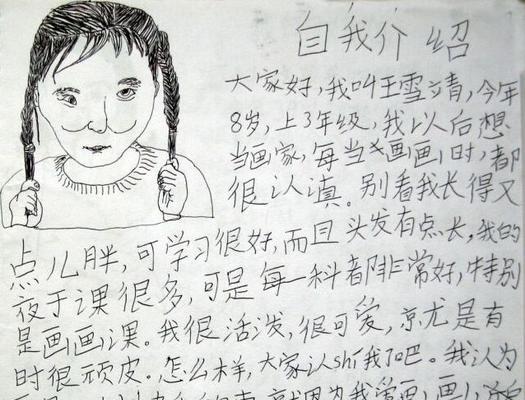 自我介绍
大家好,我叫王雪靖,今年
8岁,上3年级,我以后想
当画家,每当画画时,都
很认滇。别看我长得又
点儿胖,可学习很好,而且头发有点长,我的
夜于课很多,可是每一科都非常好,特别
是画画课。我很活泼,很可爱,就是有
时很顽皮。怎么样,大家认shi我了吧。我认为
就因为我学画画